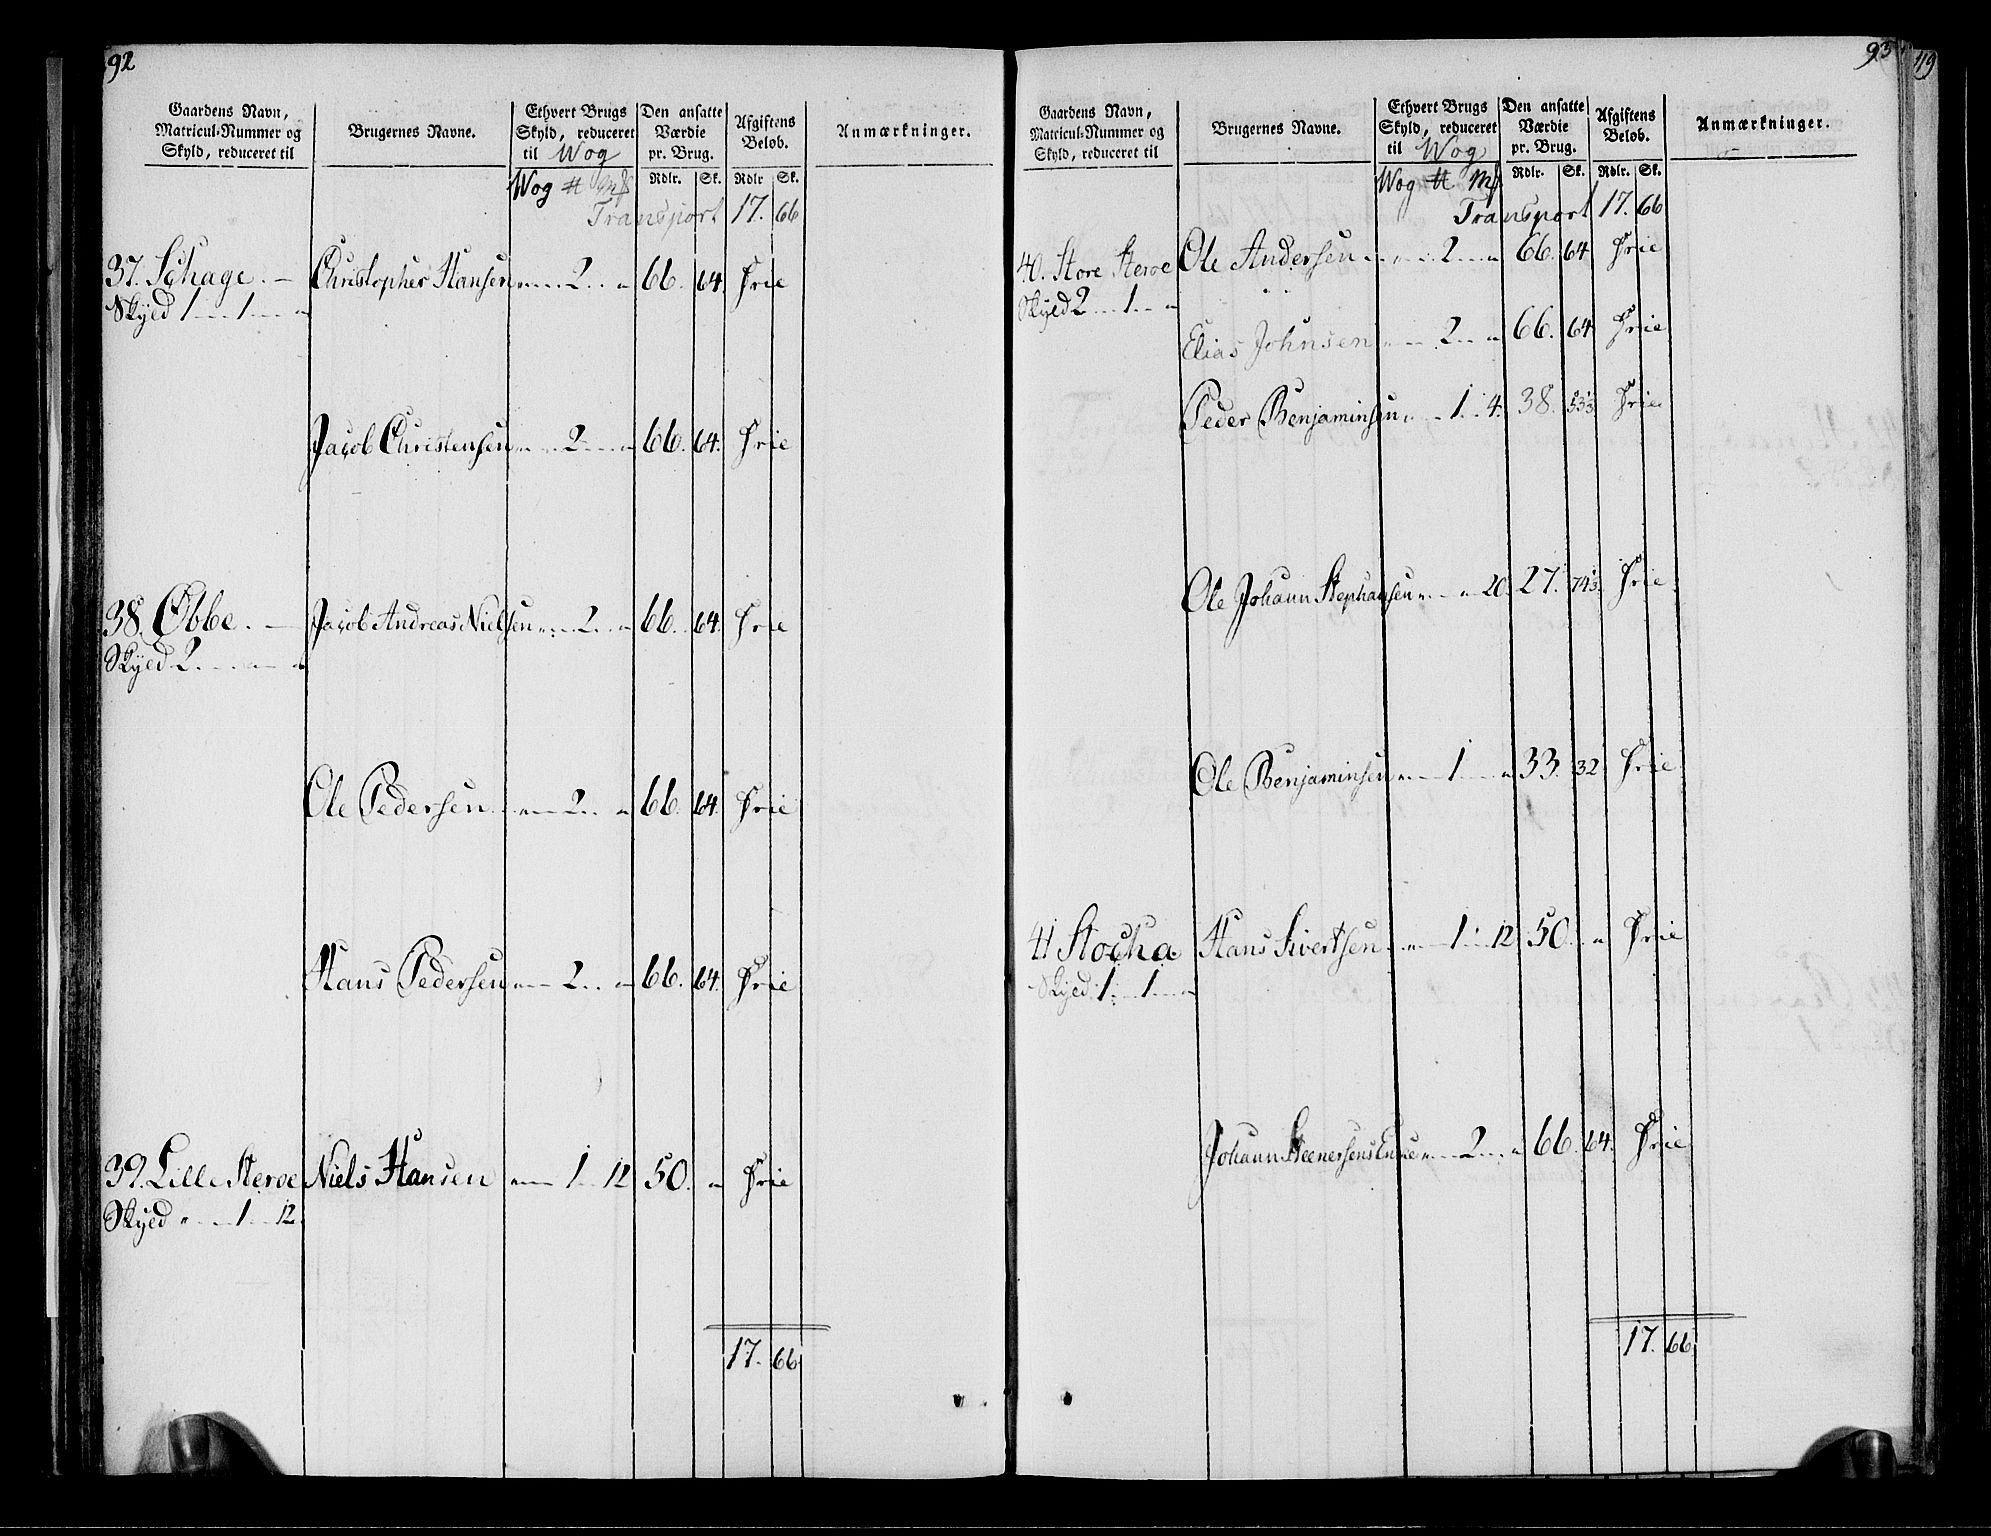 92
Gaardens Navn, Matricul-Nummer og Skyld, reduceret til | Brugernes Navne. | Ethvert Brugs Skyld, reduceret til Wog | Den ansatte Værdie pr. Brug. | Afgiftens Beløb. | Anmærkninger.
Wog ℔ Mk | Rdlr. | Sk. | Rdlr | Sk.
Transport 17. 66
37. Schage. — Christopher Hansen „ — 2 . . „ 66. 64. Frie
Skyed 1 — 1 — „
Jacob Christensen „ — 2 — „ 66. 64. Frie
38. Obbe. — Jacob Andreas Nielsen „ — 2 — „ 66. 64. Frie
Skyed 2. — „ — „
Ole Pedersen „ — 2 . . „ 66. 64. Frie
Hans Pedersen „ — 2 . . „ 66. 64. Frie
39. Lille Steroe Niels Hansen „ — 1 — 12 50. „ Frie
Skyed „ — 1 — 12.
17. 66
93
119
Gaardens Navn, Matricul-Nummer og Skyld, reduceret til | Brugernes Navne. | Ethvert Brugs Skyld, reduceret til Wog | Den ansatte Værdie pr. Brug. | Afgiftens Beløb. | Anmærkninger.
Wog ℔ Mk | Rdlr. | Sk. | Rdlr. | Sk.
Transport 17. 66
40. Store Steroe Ole Andersen „ — 2 — „ 66. 64 Frie
Skyld 2 — 1 — „
Elias Johnsen „ — 2 — „ 66. 64 Frie
Peder Benjaminsen „ — 1 . 4. 38. Frie
Ole Johann Stephansen „ — „ 20. 27. Frie
Ole Benjaminsen „ — 1 — „ 33. 32 Frie
41 Stocha Hans Sivertsen „ — 1 — 12 50. „ Frie
Skyed 1 — 1 — „
Johann Steenersens Enke „ — 2 — „ 66. 64. Frie
17. 66.